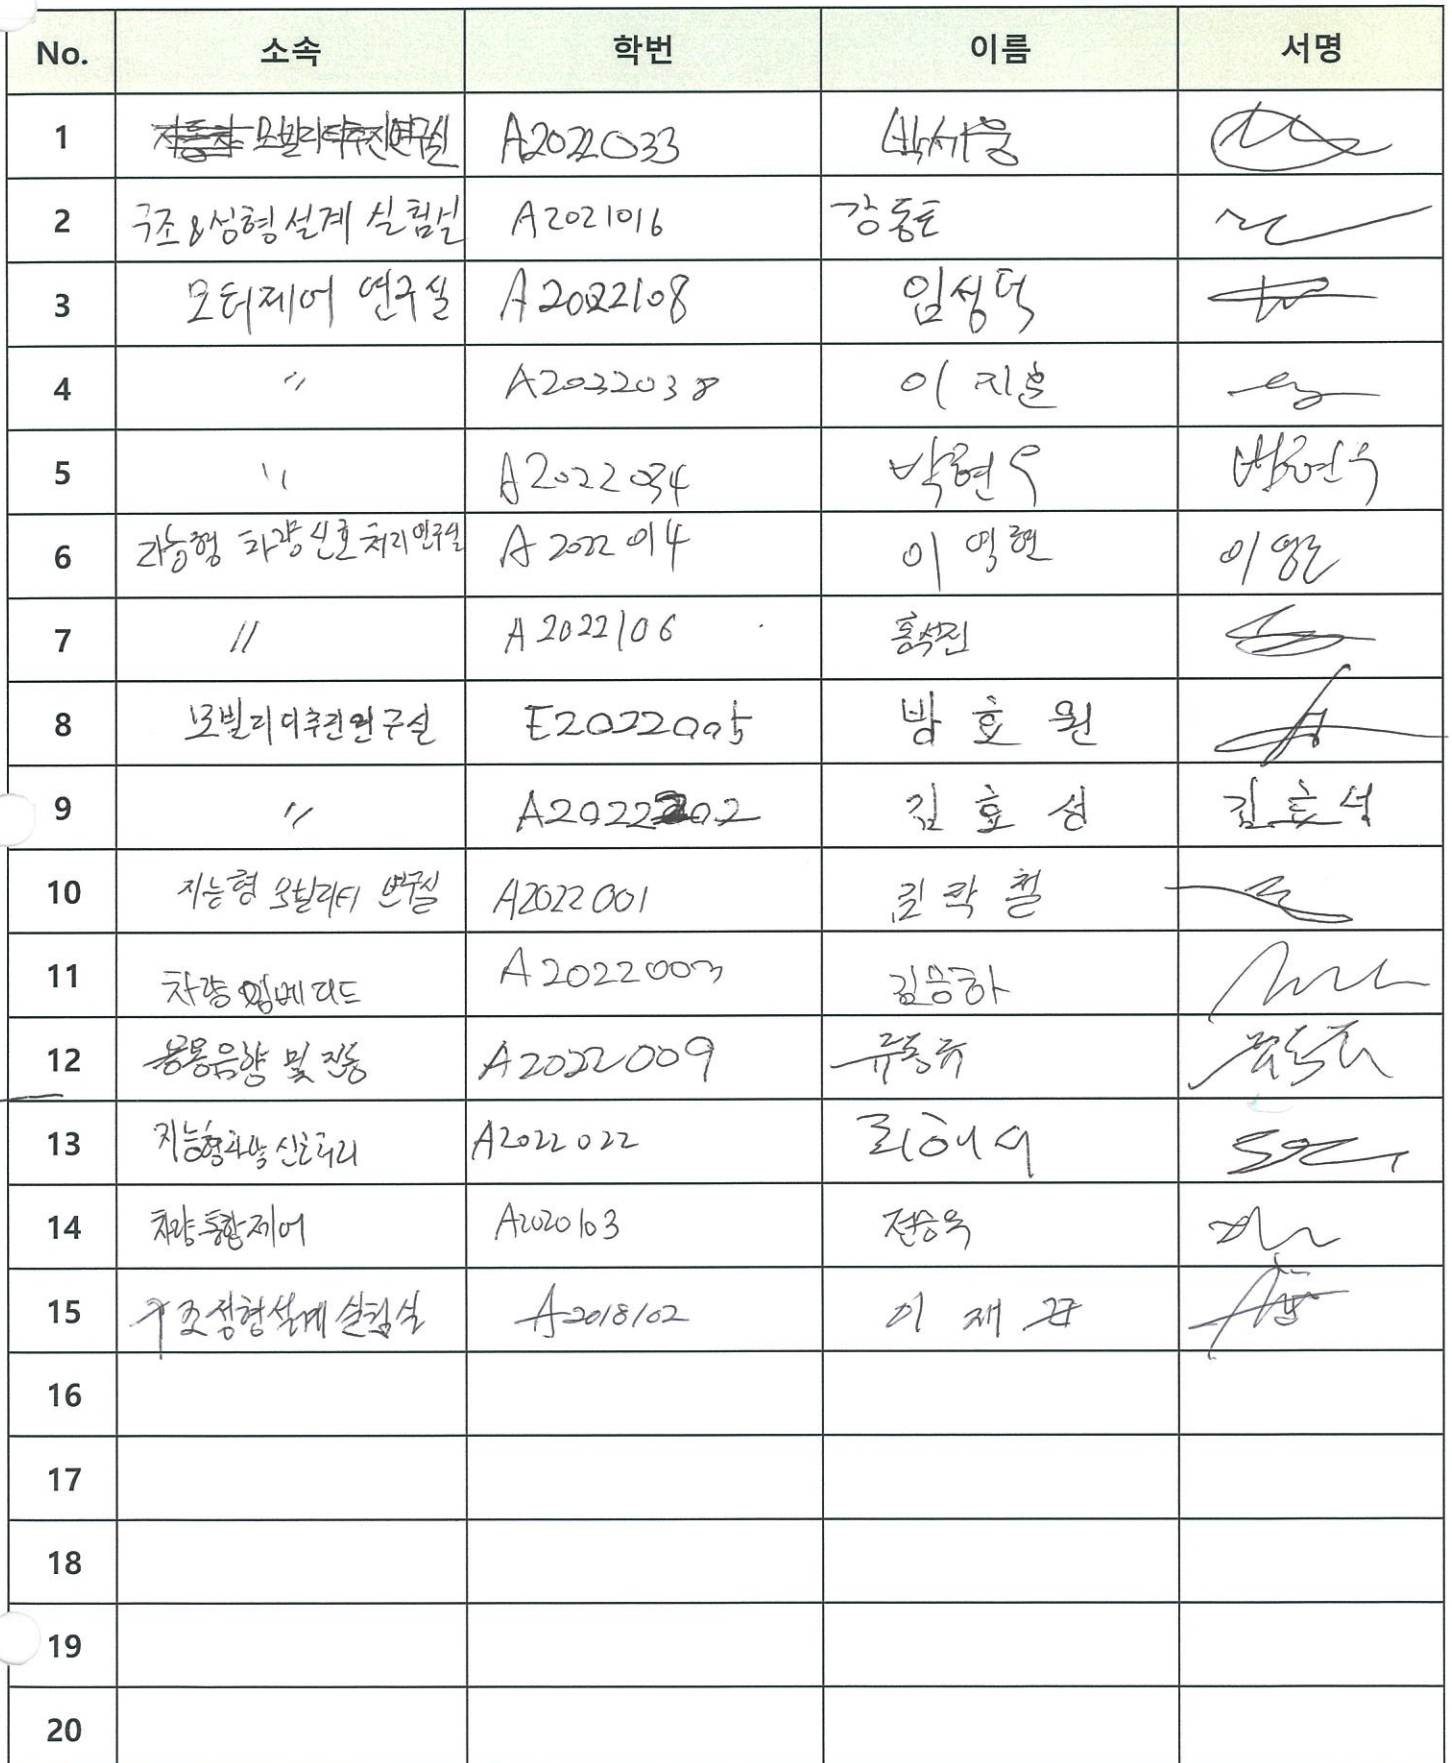 No. 소속 학번 이름 서명
1 모빌리티추진연구실 A2022033 박세웅
2 구조&성형설계 실험실 A2021016 강동토
3 모터제어 연구실 A2022108 임성덕
4 〃 A2022038 이지훈
5 〃 A2022034 박현우 박현우
6 지능형 파랑신호처리연구실 A2022014 이억현
7 〃 A2022106 홍석진
8 모빌리티추진연구실 E2022005 방효원
9 〃 A2022202 김효성 김효성
10 지능형 모빌리티 연구실 A2022001 김락철
11 차량임베디드 A2022003 김승하
12 응용음향 및 진동 A2022009 류동규
13 지능형파랑신호처리 A2022022
14 차량통합제어 A2020103 전승욱
15 구조성형설계실험실 A2018102 이재
16
17
18
19
20